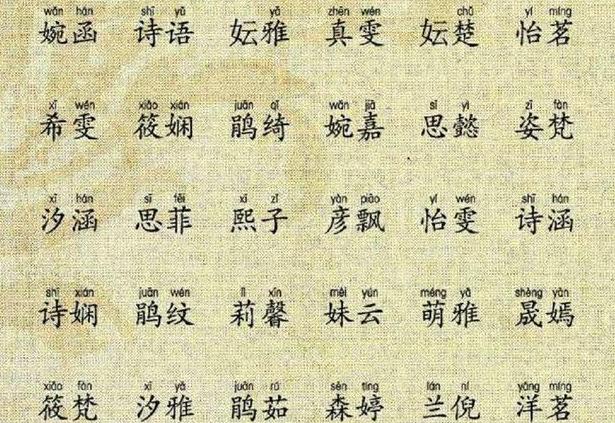 wǎn hán shī yǔ yǎ zhēn wén chǔ yí míng
婉函 诗语 妘雅 真雯 妘楚 怡茗
xī wén xiǎo xián juān qǐ wǎn jiā sī yì zī fàn
希雯 筱娴 鹃绮 婉嘉 思懿 姿梵
xī hán sī fēi xī zǐ yàn piāo yí wén shī hán
汐涵 思菲 熙子 彦飘 怡雯 诗涵
shī xián juān wén lì xīn mèi yún méng yǎ shèng yān
诗娴 鹃纹 莉馨 妹云 萌雅 晟嫣
xiǎo fàn xī yǎ juān rú sēn tíng lán ní yáng míng
筱梵 汐雅 鹃茹 森婷 兰倪 洋茗